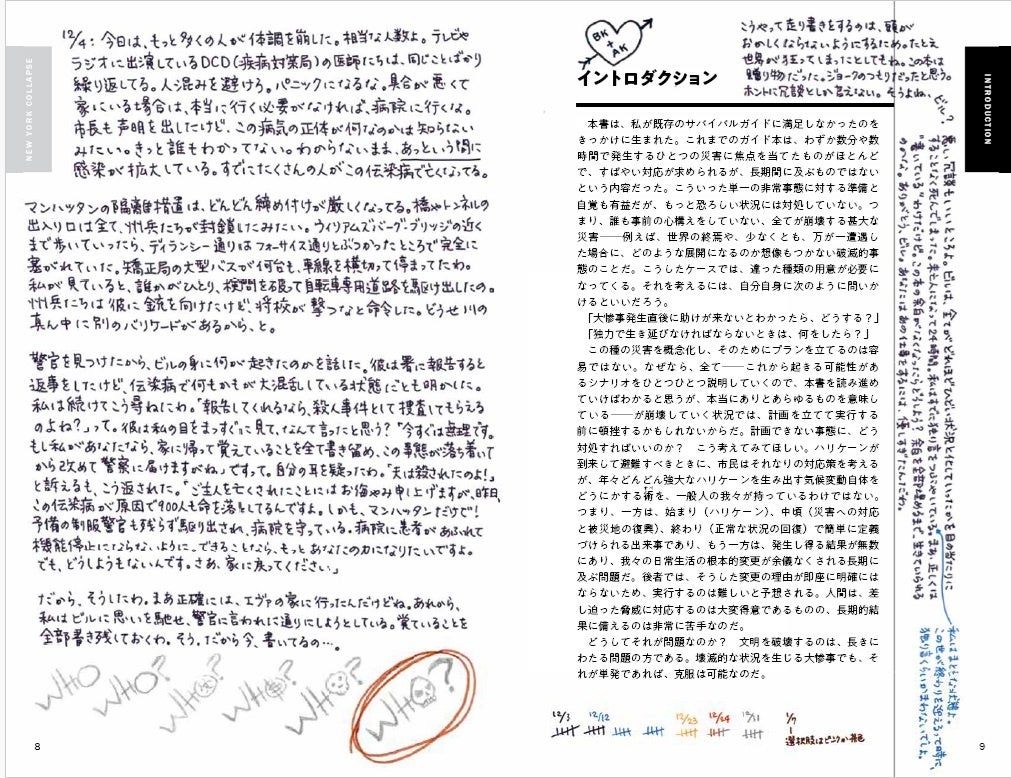 NEW YORK COLLAPSE
12/4：今日は、もっと多くの人が体調を崩した。相当な人数よ。テレビや
ラジオに出演しているDCD（疾病対策局）の医師たちは、同じことばかり
繰り返してる。人混みを避けろ。パニックになるな。具合が悪くて
家にいる場合は、本当に行く必要がなければ、病院に行くな。
市長も声明を出したけど、この病気の正体が何なのかは知らない
みたい。きっと誰もわかってない。わからないまま、あっという間に
感染が拡大している。すでにたくさんの人がこの伝染病で亡くなってる。
マンハッタンの隔離措置は、どんどん締め付けが厳しくなってる。橋やトンネルの
出入り口は全て、州兵たちが封鎖したみたい。ウィリアムズバーグ・ブリッジの近く
まで歩いていったら、ディランシー通りはフォーサイス通りとぶつかったところで完全に
塞がれていた。矯正局の大型バスが何台も、車線を横切って停まってたわ。
私が見ていると、誰かがひとり、検問を破って自転車専用道路を駆け出したの。
州兵たちは彼に銃を向けたけど、将校が撃つなと命令した。どうせ川の
真ん中に別のバリケードがあるから、と。
警官を見つけたから、ビルの身に何が起きたのかを話した。彼は署に報告すると
返事をしたけど、伝染病で何もかもが大混乱している状態だとも明かした。
私は続けてこう尋ねたわ。「報告してくれるなら、殺人事件として捜査してもらえる
のよね？」って。彼は私の目をまっすぐに見て、なんて言ったと思う？「今すぐは無理です。
もし私があなたなら、家に帰って覚えていることを全て書き留め、この事態が落ち着いて
から改めて警察に届けますがね」ですって。自分の耳を疑ったわ。「夫は殺されたのよ！」
と訴えるも、こう返された。「ご主人を亡くされたことにはお悔やみ申し上げますが、昨日、
この伝染病が原因で900人も命を落としてるんです。しかも、マンハッタンだけで！
予備の制服警官も残らず駆り出され、病院を守っている。病院に患者があふれて
機能停止にならないように。できることなら、もっとあなたの力になりたいですよ。
でも、どうしようもないんです。さあ、家に戻ってください」
だから、そうしたわ。まあ正確には、エヴァの家に行ったんだけどね。あれから、
私はビルに思いを馳せ、警官に言われた通りにしようとしている。覚えていることを
全部書き残しておくわ。そう、だから今、書いてるの…。
WHO WHO? WHO? WHO? WHO? WHO?
8
BK
+
AK
イントロダクション
こうやって走り書きをするのは、頭が
おかしくならないようにするため。たとえ
世界が狂ってしまったとしてもね。この本は
贈り物だった。ジョークのつもりだったと思う。
ホントに冗談としか言えない。そうよね、ビル？
INTRODUCTION
本書は、私が既存のサバイバルガイドに満足しなかったのを
きっかけに生まれた。これまでのガイド本は、わずか数分や数
時間で発生するひとつの災害に焦点を当てたものがほとんど
で、すばやい対応が求められるが、長期間に及ぶものではない
という内容だった。こういった単一の非常事態に対する準備と
自覚も有益だが、もっと恐ろしい状況には対処していない。つ
まり、誰も事前の心構えをしていない、全てが崩壊する甚大な
災害――例えば、世界の終焉や、少なくとも、万が一遭遇し
た場合に、どのような展開になるのか想像もつかない破滅的事
態のことだ。こうしたケースでは、違った種類の用意が必要に
なってくる。それを考えるには、自分自身に次のように問いか
けるといいだろう。
「大惨事発生直後に助けが来ないとわかったら、どうする？」
「独力で生き延びなければならないときは、何をしたら？」
この種の災害を概念化し、そのためにプランを立てるのは容
易ではない。なぜなら、全て――これから起きる可能性があ
るシナリオをひとつひとつ説明していくので、本書を読み進め
ていけばわかると思うが、本当にありとあらゆるものを意味し
ている――が崩壊していく状況では、計画を立てて実行する
前に頓挫するかもしれないからだ。計画できない事態に、どう
対処すればいいのか？　こう考えてみてほしい。ハリケーンが
到来して避難すべきときに、市民はそれなりの対応策を考える
が、年々どんどん強大なハリケーンを生み出す気候変動自体を
どうにかする術を、一般人の我々が持っているわけではない。
つまり、一方は、始まり（ハリケーン）、中頃（災害への対応
と被災地の復興）、終わり（正常な状況の回復）で簡単に定義
づけられる出来事であり、もう一方は、発生し得る結果が無数
にあり、我々の日常生活の根本的変更が余儀なくされる長期に
及ぶ問題だ。後者では、そうした変更の理由が即座に明確には
ならないため、実行するのは難しいと予想される。人間は、差
し迫った脅威に対応するのは大変得意であるものの、長期的結
果に備えるのは非常に苦手なのだ。
どうしてそれが問題なのか？　文明を破壊するのは、長きに
わたる問題の方である。壊滅的な状況を生じる大惨事でも、そ
れが単発であれば、克服は可能なのだ。
悪い冗談もいいところよ。ビルは、全てがどれほどひどい状況と化していったかを目の当たりに
することなく死んでしまった。未亡人になって24時間。私はすでに独り言をつぶやいている。まあ、正しくは
"書いている"わけだけど。この本の余白がなくなったらどうしよう？ 余白を全部埋めるまで、生きていられる
のかな。ありがとう、ビル。あなたはあの仕事をするには、優しすぎたんだわ。
私はまともな状態よ。
この世が終わりを迎えるって時に、
独り言くらいかまわないでしょ。
12/3 12/12 12/23 12/24 12/31 1/7
選択肢はピンクか褐色
9